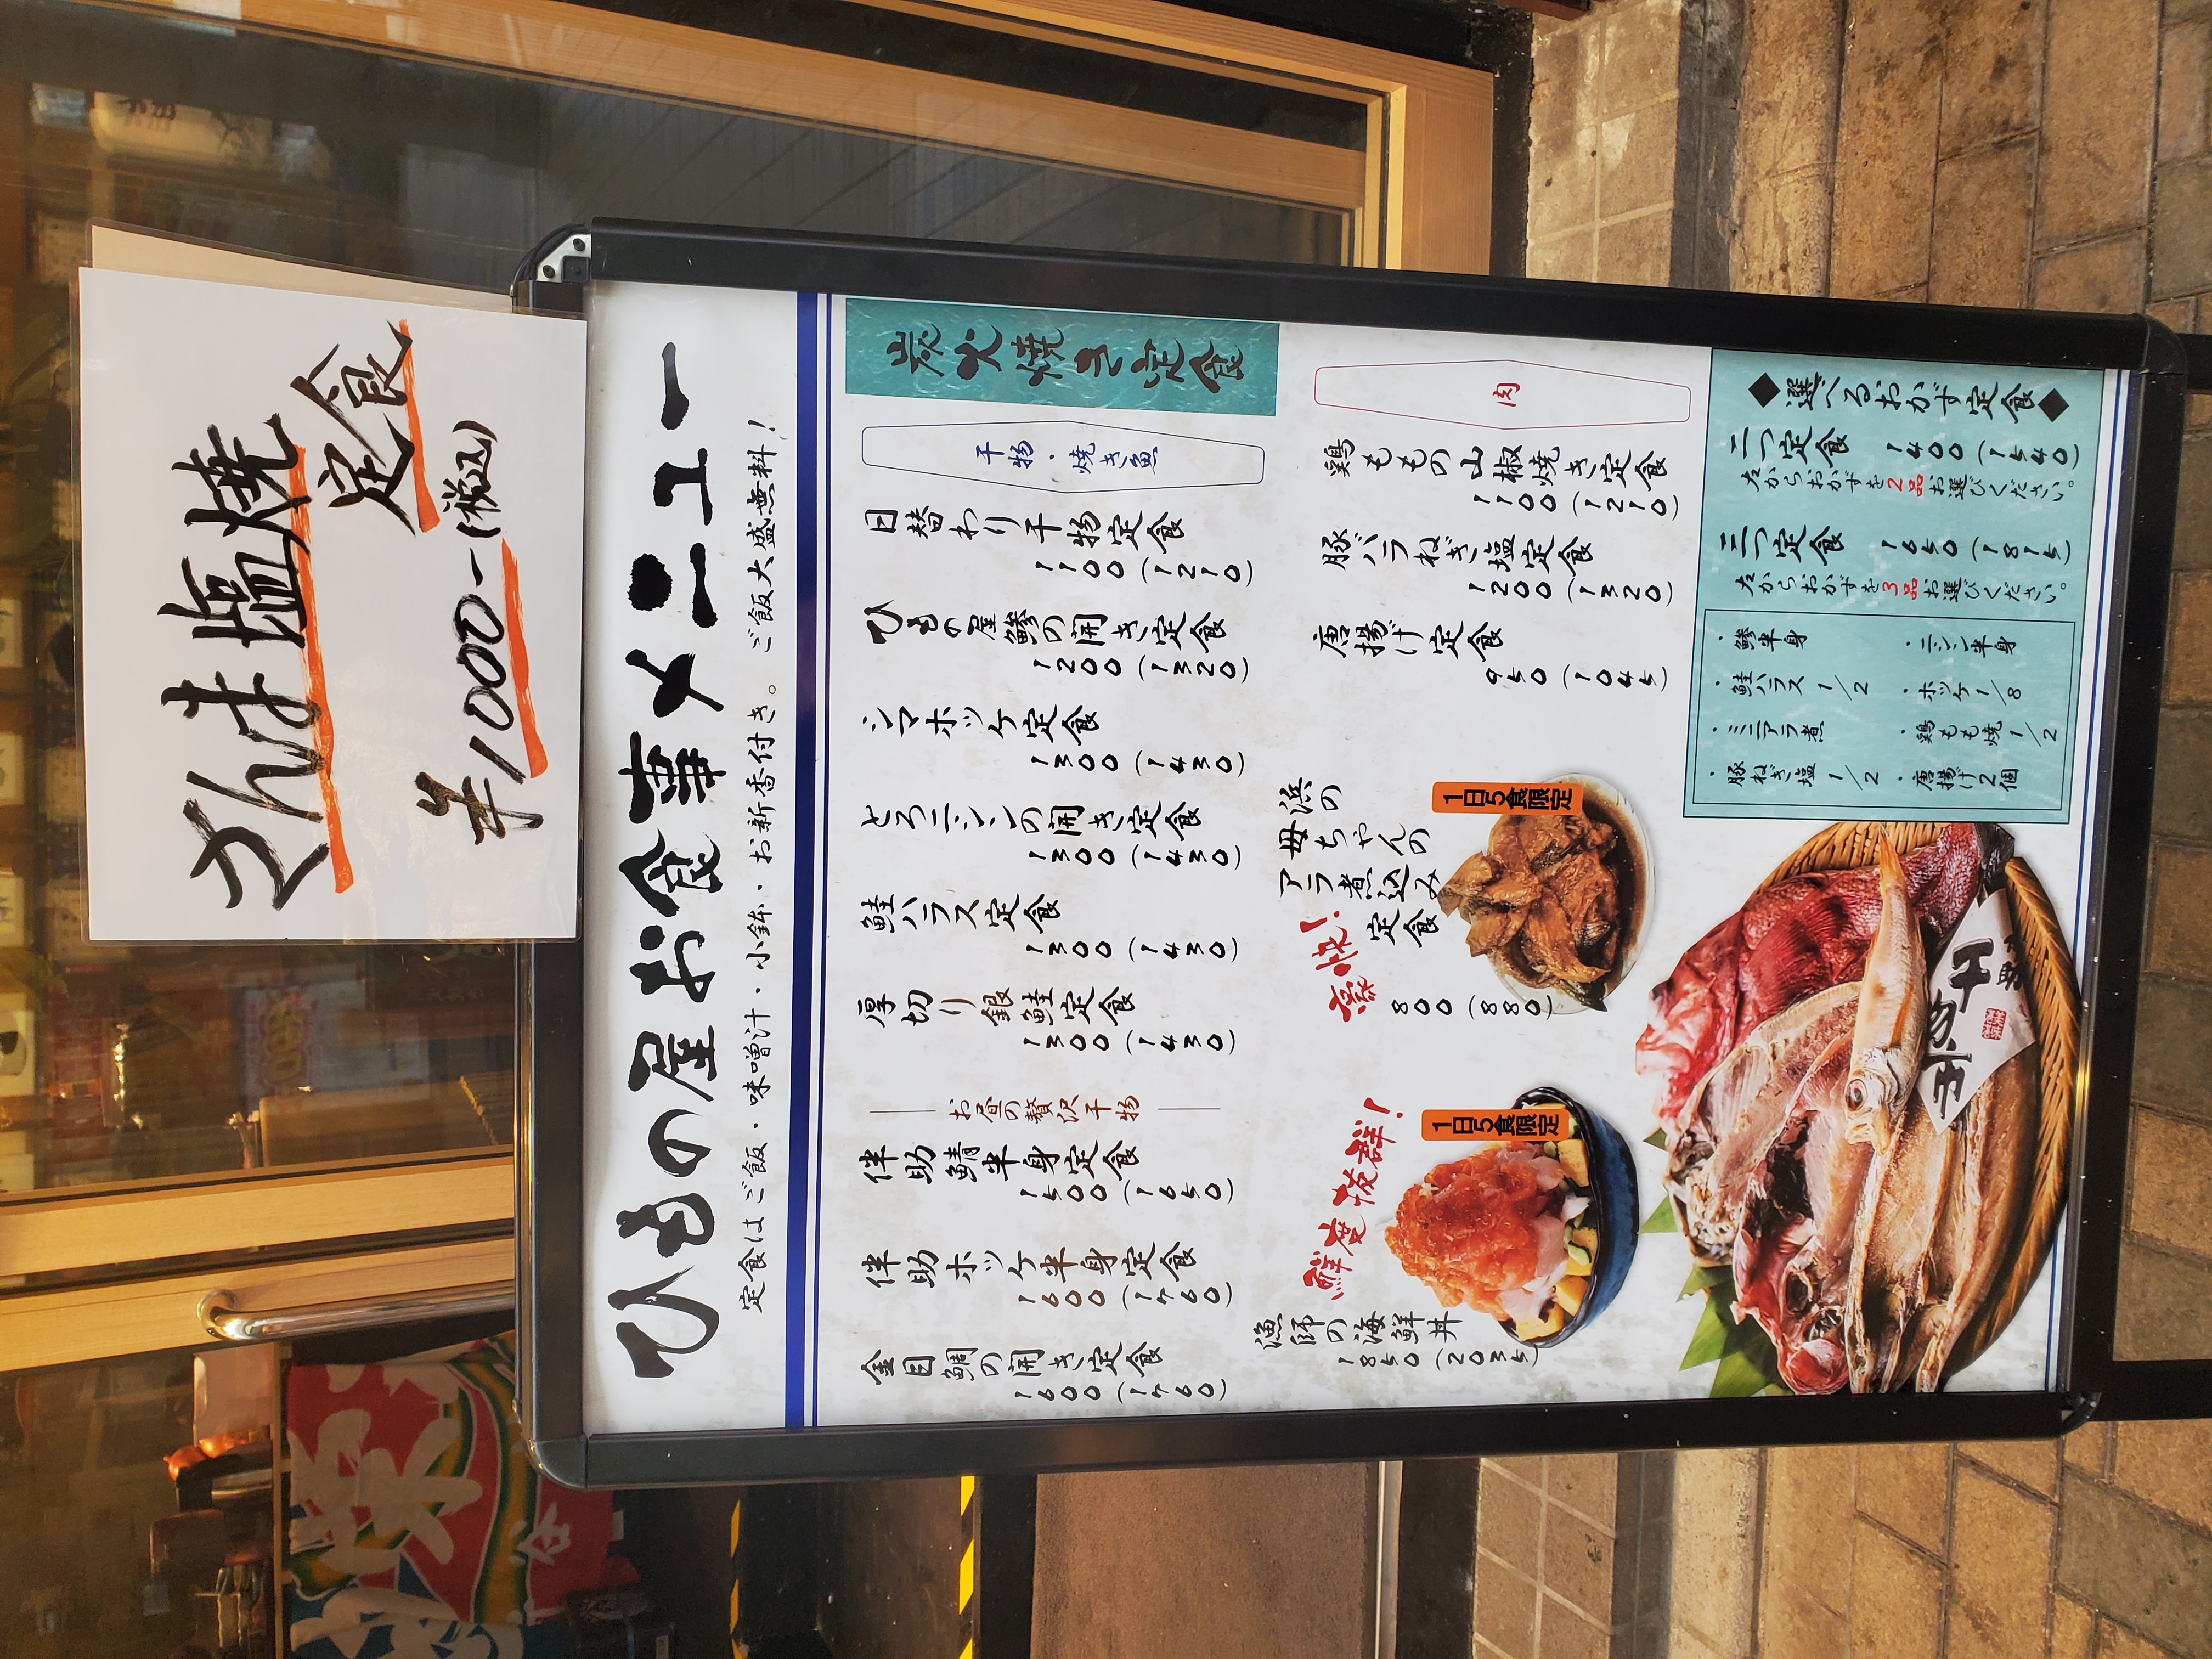 さんま塩焼
定食
¥1000-(税込)
ひもの屋お食事メニュー
定食はご飯・味噌汁・小鉢・お新香付き。ご飯大盛無料！
炭火焼き定食
干物・焼き魚
日替わり干物定食
1100(1210)
ひもの屋鯵の開き定食
1200(1320)
シマホッケ定食
1300(1430)
とろニシンの開き定食
1300(1430)
鮭ハラス定食
1300(1430)
厚切り銀鮭定食
1300(1430)
お昼の贅沢干物
伴助鯖半身定食
1500(1650)
伴助ホッケ半身定食
1600(1760)
金目鯛の開き定食
1600(1760)
肉
鶏ももの山椒焼き定食
1100(1210)
豚バラねぎ塩定食
1200(1320)
唐揚げ定食
950(1045)
浜の
母ちゃんの
アラ煮込み
定食
豪快！
800(880)
1日5食限定
鮮度抜群！
1日5食限定
漁師の海鮮丼
1850(2035)
◆選べるおかず定食◆
二つ定食
1400(1540)
左からおかずを2品お選びください。
三つ定食
1650(1815)
左からおかずを3品お選びください。
・鯵半身
・ニシン半身
・鮭ハラス1/2
・ホッケ1/8
・ミニアラ煮
・鶏もも焼1/2
・豚ねぎ塩1/2
・唐揚げ2個
干物